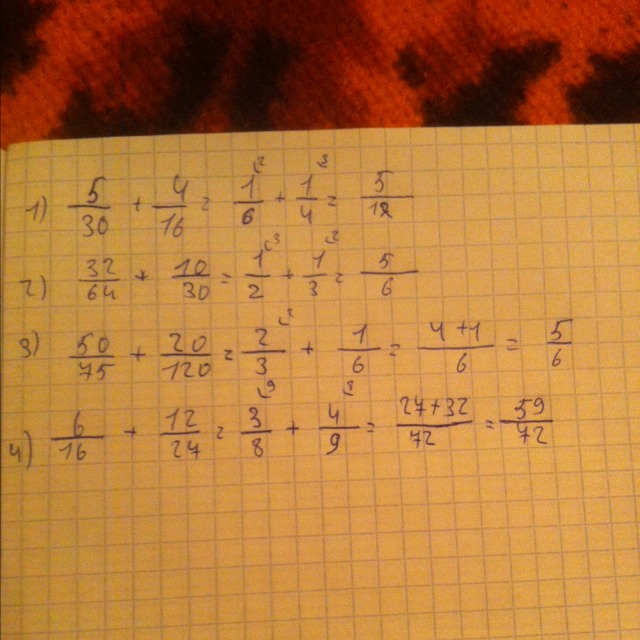 1) 5/30 + 4/16 = 1/6 ² + 1/4 ³ = 5/12
2) 32/64 + 10/30 = 1/2 ³ + 1/3 ² = 5/6
3) 50/75 + 20/120 = 2/3 ² + 1/6 = 4+1/6 = 5/6
4) 6/16 + 12/24 = 3/8 ⁹ + 4/9 ⁸ = 27+32/72 = 59/72